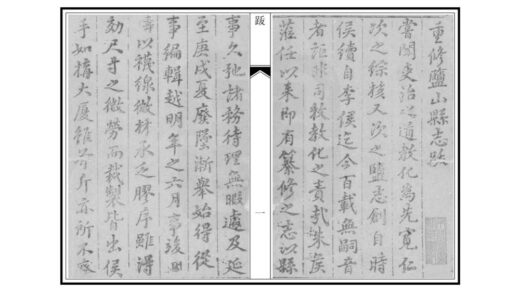 重修鹽山縣志跋
嘗聞吏治之道教化為先寬仁
次之綜核又次之鹽志創自時
侯續自李侯迄今百載無嗣音
者詎非司牧教化之責哉朱侯
蒞任以來即有纂修之志以縣
跋
一
事久弛諸務待理無暇遽及延
至庚戌夏廢墜漸舉始得從
事編輯越明年之六月事竣
壽以襪線微材承乏膠庠雖得
効尺寸之微勞而裁製皆出侯
手如構大厦雖斤亦所不